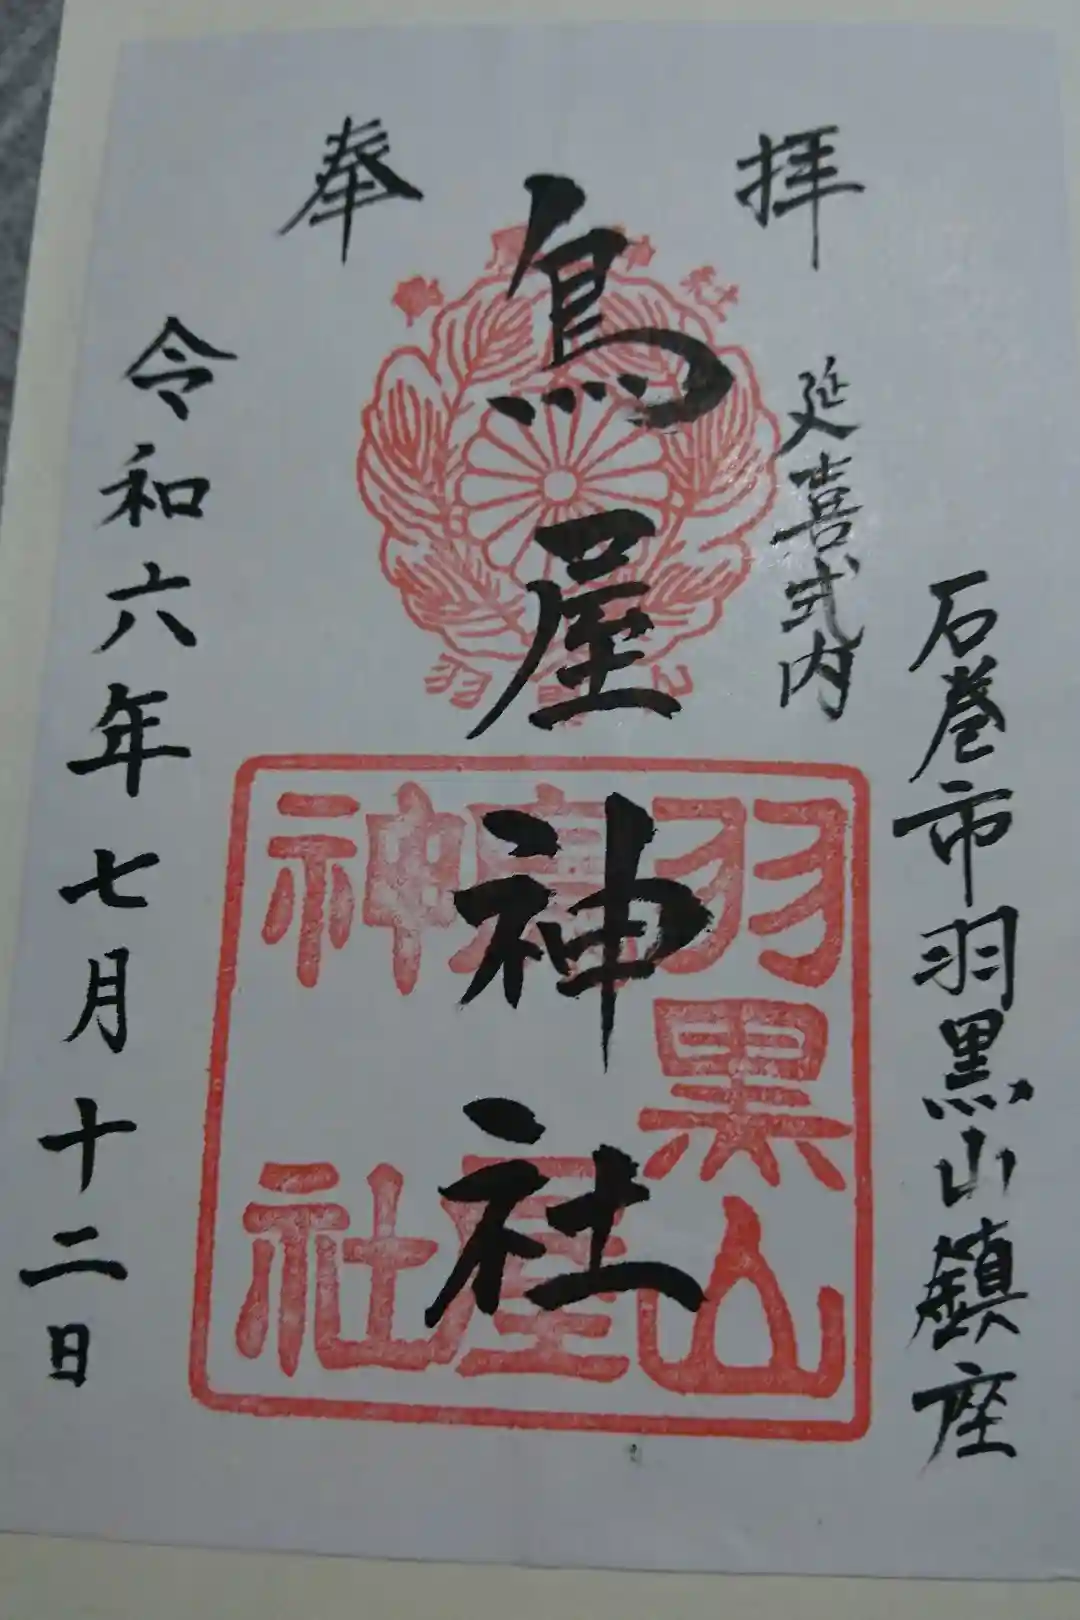 奉拝
延喜式内
石巻市羽黒山鎮座
鳥屋神社
令和六年七月十二日
羽黒山
鳥屋
神社